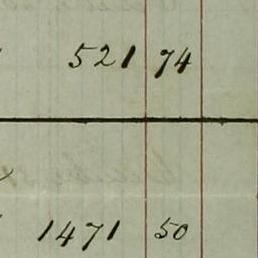 521 74
1471 50